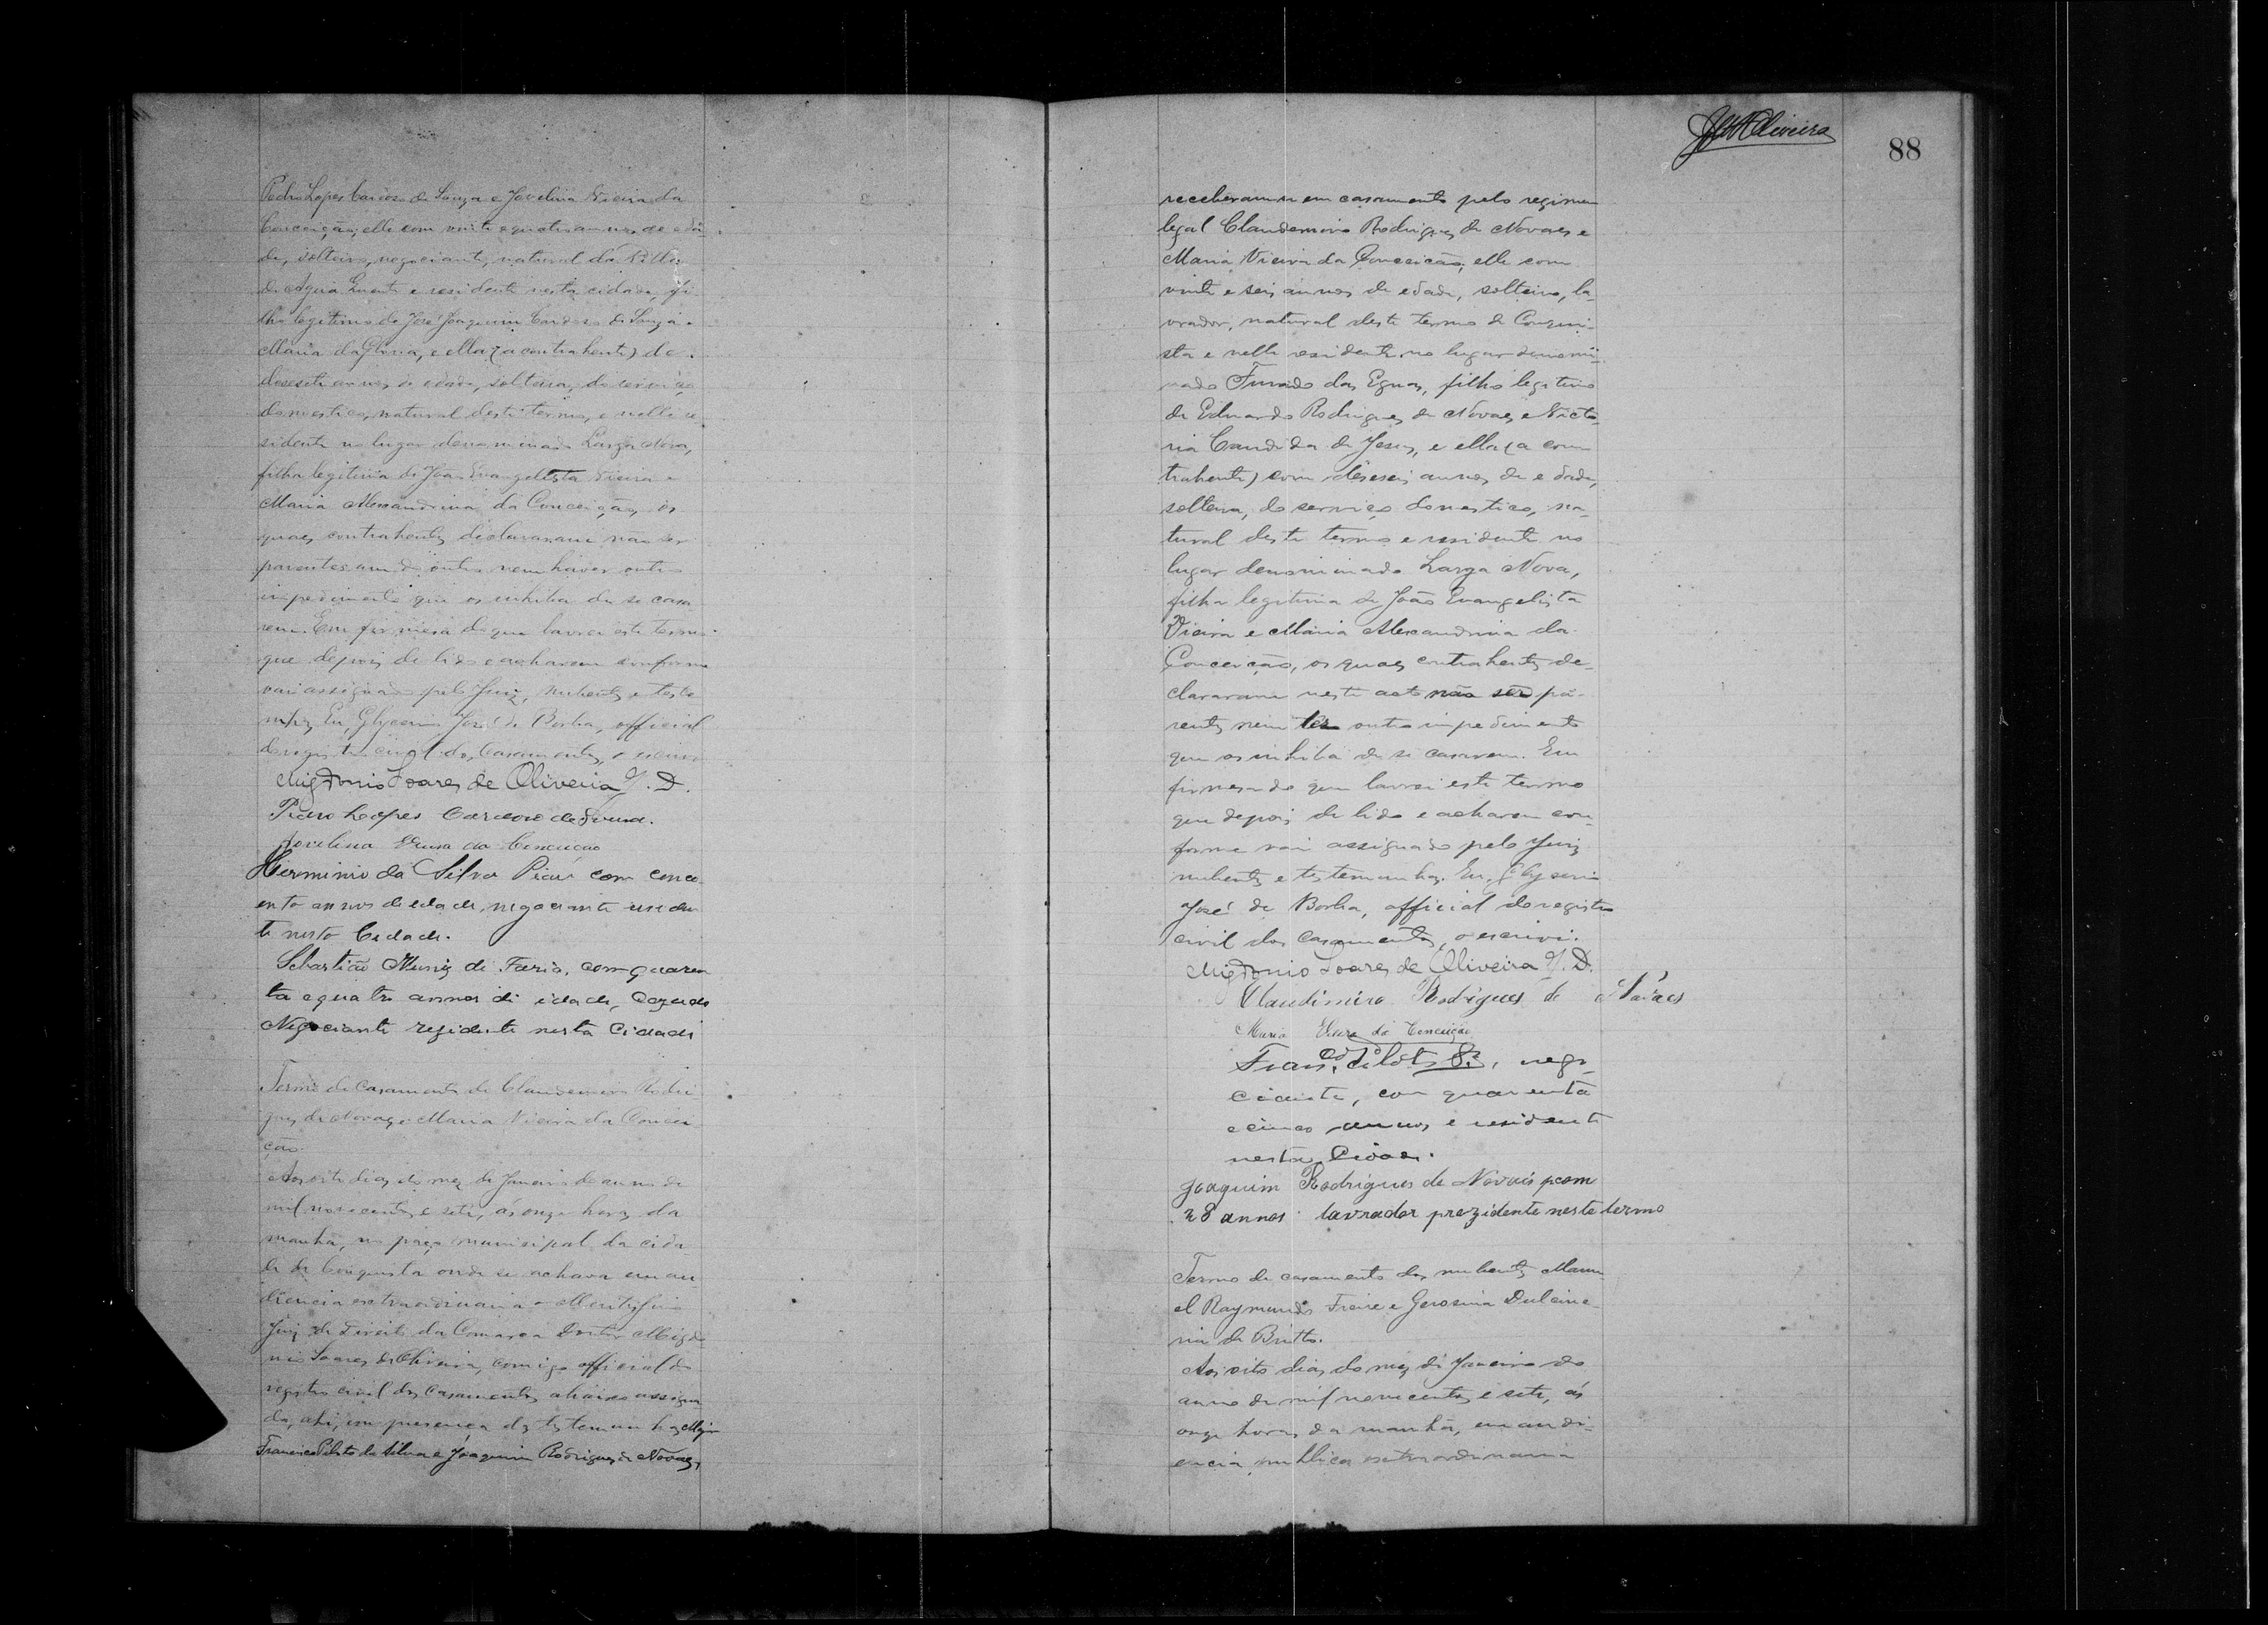 Pedro Lopes Cardoso de Souza e Jovelina Vieira da
Conceição, elle com vinte e quatro annos de eda-
de, solteiro, negociante, natural da Villa
de Agua Quente e residente nesta cidade, fi-
lho legitimo de José Joaquim Cardoso de Souza e
Maria da Gloria, e ella (a contrahente) de
desesete annos de edade, solteira, do serviço
domestico, natural deste termo, e nelle re-
sidente no lugar denominado Larga Nova,
filha legitima de João Evangelista Vieira e
Maria Alexandrina da Conceição, os
quaes contrahentes declararam não ser
parentes um do outro nem haver outro
impedimento que os inhiba de se casa-
rem. Em firmesa do que lavrei este termo
que depois de lido e acharem conforme
vai assignado pelo Juiz, nubentes e teste-
munhas. Eu, Glycerio José de Borba, official
do registro civil dos Casamentos, o escrevi
Migdonio Soares de Oliveira J. D.
Pedro Lopes Cardoso de Souza.
Jovelina Vieira da Conceicão
Herminio da Silva Picui com conco-
enta annos de edade, negociante residen
te nesta Cidade.
Sebastião Muniz de Faria, com quaren
ta e quatro annos di idade, Cazado
Negociante rezidente nesta Cidadi
Termo de Casamento de Claudemiro Rodri
gues de Novaes e Maria Vieira da Concei
ção.
Aos oito dias do mez de Janeiro do anno de
mil novecentos e sete, ás onze horas da
manhã, no paço municipal da cida-
de da Conquista onde se achava em au
diencia extraordinaria o Meritissimo
Juiz de Direito da Comarca Doutor Migdo
nio Soares de Oliveira, comigo official do
registro civil dos Casamentos abaixo assigna
do, ahi, em presença das testemunhas Major
Francisco Piloto da Silva e Joaquim Rodrigues de Novaes,
JMOliveira
88
receberam-se em casamento pelo regimen
legal Claudemiro Rodrigues de Novaes e
Maria Vieira da Conceicão, elle com
vinte e seis annos de edade, solteiro, la-
vrador, natural deste termo de Conqui-
sta e nelle residente no lugar denomi-
nado Furado das Eguas, filho legitimo
de Eduardo Rodrigues de Novaes e Victo-
ria Candida de Jesus, e ella (a con
trahente) com deseseis annos de edade,
solteira, do serviço domestico, na-
tural deste termo e residente no
lugar denominado Larga Nova,
filha legitima de João Evangelista
Vieira e Maria Alexandrina da
Conceicão, os quaes contrahentes de-
clararam neste acto não ser pa-
rentes nem ter outro impedimento
que os inhiba de se casarem. Em
firmesa do que lavrei este termo
que depois de lido e acharem con-
forme vai assignado pelo Juiz
nubentes e testemunhas. Eu, Glycerio
José de Borba, official do registro
civil dos Casamentos, o escrevi.
Migdonio Soares de Oliveira J. D.
Claudimiro Rodrigues de Novaes
Maria Vieira da Conceição
Franco Piloto Sa, nego-
ciante, com quarenta
e cinco annos e residente
nesta Cidade.
Joaquim Rodrigues de Novais, com
28 annos lavrador, rezidente neste termo
Termo de casamento dos nubentes Manu
el Raymundo Freire e Gerosina Dulcine-
ria de Britto.
Aos oito dias do mez de Janeiro do
anno de mil novecentos e sete, ás
onze horas da manhã, em audi-
encia publica extraordinaria